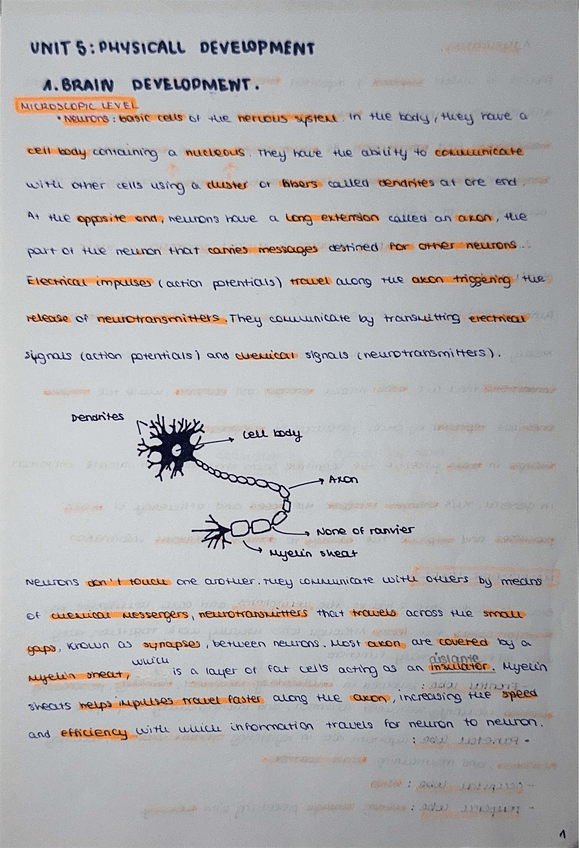 UNIT 5: PHYSICALL DEVELOPMENT
1. BRAIN DEVELOPMENT.
MICROSCOPIC LEVEL
• Neurons: basic cells of the nervous system. In the body, they have a
cell body containing a nucleous. They have the ability to communicate
with other cells using a cluster or fibers called dendrites at one end
At the opposite end, neurons have a long extension called an axon, the
part of the neuron that carries messages destined for other neurons..
Electrical impulses (action potentials) travel along the axon triggering the
release of neurotransmitters. They communicate by transmitting electrical
signals (action potentials) and chemical signals (neurotransmitters).
Dendrites
Cell body
Axon
None of ranvier
Myelin sheat
Neurons don't touch one another. They communicate with others by means
of chemical messengers, neurotransmitters that travels across the small
gaps, known as synapses, between neurons. Most axon are covered by a
which aislante
Myelin sheat, is a layer of fat cells acting as an insulator. Myelin
sheats helps impulses travel faster along the axon, increasing the speed
and efficiency with which information travels for neuron to neuron.
1